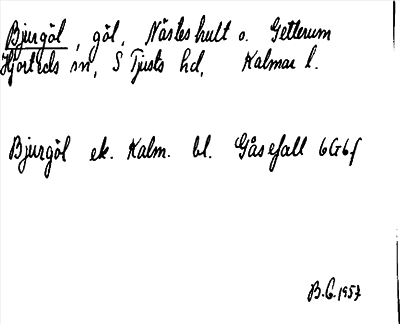 Bjurgöl, göl, Nästeshult o. Getterum
Hjorteds sn, S Tjusts hd, Kalmar l.
Bjurgöl ek. Kalm. bl. Gåsefall 6G6f
B.G. 1957